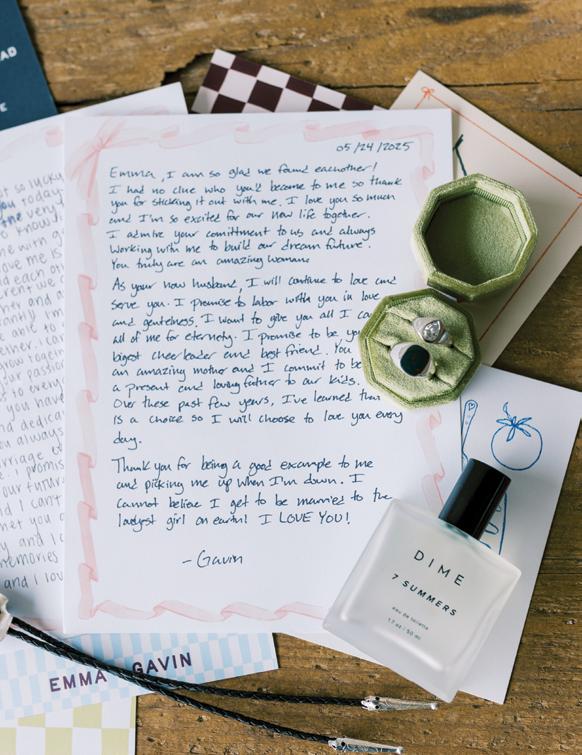 AD
E
05/24/2025
Emma, I am so glad we found eachother!
I had no clue who you'd become to me so thank
you for sticking it out with me. I love you so much
and I'm so excited for our new life together.
I admire your comittment to us and always
working with me to build our dream future.
You truly are an amazing woman.
As your now husband, I will continue to love and
serve you. I promise to labor with you in love
and gentelness. I want to give you all I ca
all of me for eternity. I promise to be you
bigest cheerleader and best friend. You
an amazing mother and I commit to be
a present and loving father to our kids.
Over these past few years, I've learned that
is a choice so I will choose to love you every
day.
Thank you for being a good example to me
and picking me up when I'm down. I
cannot believe I get to be married to the
girl on earth! I LOVE YOU!
-Gavin
so lucky
today
the very
love me is
passion
to every
you have
and dedica
you always
I promis
our futur
I can't
met you
memories
and I lov
DIME
7 SUMMERS
eau de toilette
1.7 oz / 50 ml
EMMA GAVIN